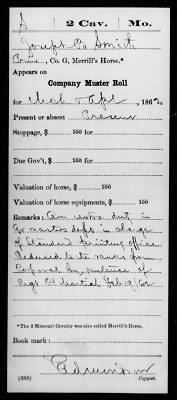 S 2 Cav. Mo.
Joseph E. Smith
, Co. G, Merrill's Horse.*
Appears on
Company Muster Roll
for Mch & Apl, 1862.
Present or absent Present
Stoppage, $ 100 for
Due Gov't, $ 100 for
Valuation of horse, $ 100
Valuation of horse equipments, $ 100
Remarks: On extra duty in
Qr masters dept in charge
of Printing Office
Reduced to ranks from
Corporal by sentence of
Regt Ct Martial Feb 19/62
*The 2 Missouri Cavalry was also called Merrill's Horse.
Book mark:
(358) Copyist.